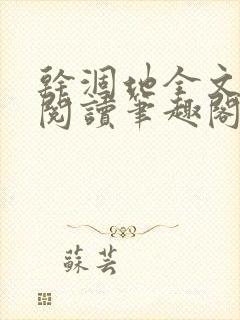 幹涸地全文
閱讀筆趣閣
蘇芸